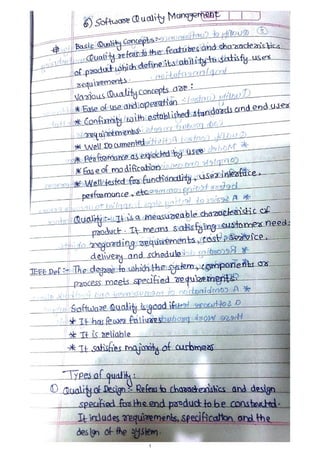 6) Software Quality Management
* Basic Quality Concepts:-
Quality refers to the features and characteristics
of product which define its ability to satisfy user
requirements.
Various Quality concepts are :
* Ease of use and operation
* Confirmity with established standards and end user
requirements
* Well Documented
* Performance as expected by user
* Ease of modification
* Well tested for functionality, user interface,
performance, etc
Quality:- It is a measureable characteristic of
product. It means satisfying customer need
regarding requirements, cost, service,
delivery and schedule
IEEE Def:- The degree to which the system, components or
process meets specified requirements.
Software Quality is good if
* It has fewer failures
* It is reliable
* It satisfies majority of customers
Types of quality:
① Quality of Design:- Refers to characteristics and design
specified for the end product to be constructed.
It includes requirements, specification and the
design of the system.
1